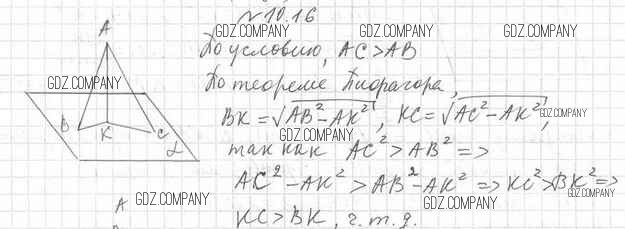 №10.16
GDZ.COMPANY GDZ.COMPANY GDZ.COMPANY
A
По условию, AC > AB
GDZ.COMPANY
По теореме Пифагора,
BK = √AB² - AK², KC = √AC² - AK², GDZ.COMPANY
B K C α
GDZ.COMPANY
так как AC² > AB² =>
AC² - AK² > AB² - AK² => KC² > BK² =>
A GDZ.COMPANY GDZ.COMPANY GDZ.COMPANY
KC > BK, ч.т.д.